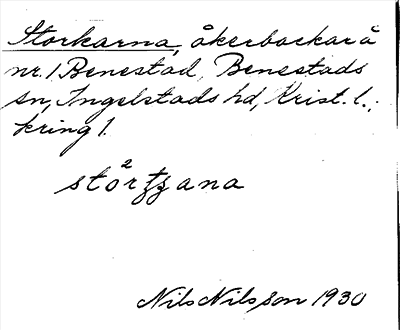 Storkarna, åkerbackar å
nr. 1 Benestad, Benestads
sn, Ingelstads hd, Krist. l.,
kring 1.
2
stor ana
Nils Nilsson 1930